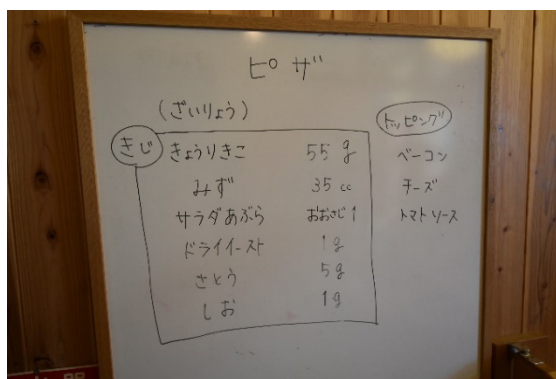 ピザ
(ざいりょう)
きじ
きょうりきこ 55g
みず 35cc
サラダあぶら おおさじ1
ドライイースト 1g
さとう 5g
しお 1g
トッピング
ベーコン
チーズ
トマトソース